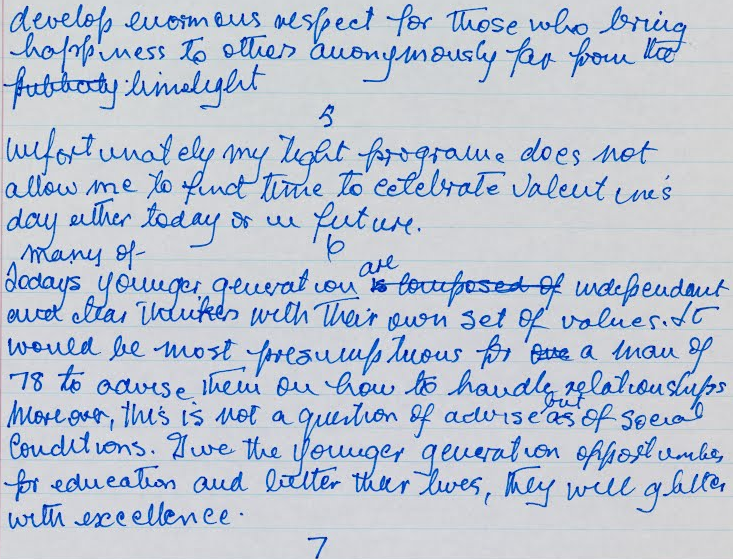 develop enormous respect for those who bring
happiness to others anonymously far from the
publicity limelight
5
Unfortunately my tight programe does not
allow me to find time to celebrate Valentine's
day either today or in future.
6
many of
are
Todays younger generation is composed of independant
and clear thinkers with their own set of values. It
would be most presumptuous for one a man of
78 to advise them on how to handle relationships
but
Moreover, this is not a question of advise as of social
Conditions. Give the younger generation opportunities
for education and better their lives, they will glitter
with excellence.
7